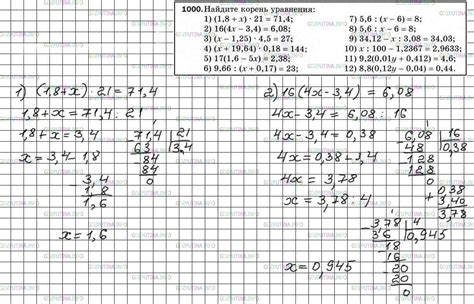 1000. Найдите корень уравнения:
1) (1,8 + x) · 21 = 71,4;
2) 16(4x − 3,4) = 6,08;
3) (x − 1,25) · 4,5 = 27;
4) (x + 19,64) · 0,18 = 144;
5) 17(1,6 − 5x) = 2,38;
6) 9,66 : (x + 0,17) = 23;
7) 5,6 : (x − 6) = 8;
8) 5,6 : x − 6 = 8;
9) 34,12 − x : 3,08 = 34,03;
10) x : 100 − 1,2367 = 2,9633;
11) 9,2(0,01y + 0,412) = 4,6;
12) 8,8(0,12y − 0,04) = 0,44.
1) (1,8 + x) · 21 = 71,4
1,8 + x = 71,4 : 21
1,8 + x = 3,4
x = 3,4 − 1,8
71,4 21
63 3,4
84
84
0
3,4
1,8
1,6
x = 1,6
2) 16(4x − 3,4) = 6,08
4x − 3,4 = 6,08 : 16
4x − 3,4 = 0,38
4x = 0,38 + 3,4
4x = 3,78
x = 3,78 : 4
6,08 16
48 0,38
128
128
0
0,38
+ 3,40
3,78
3,78 4
36 0,945
18
16
20
20
0
x = 0,945